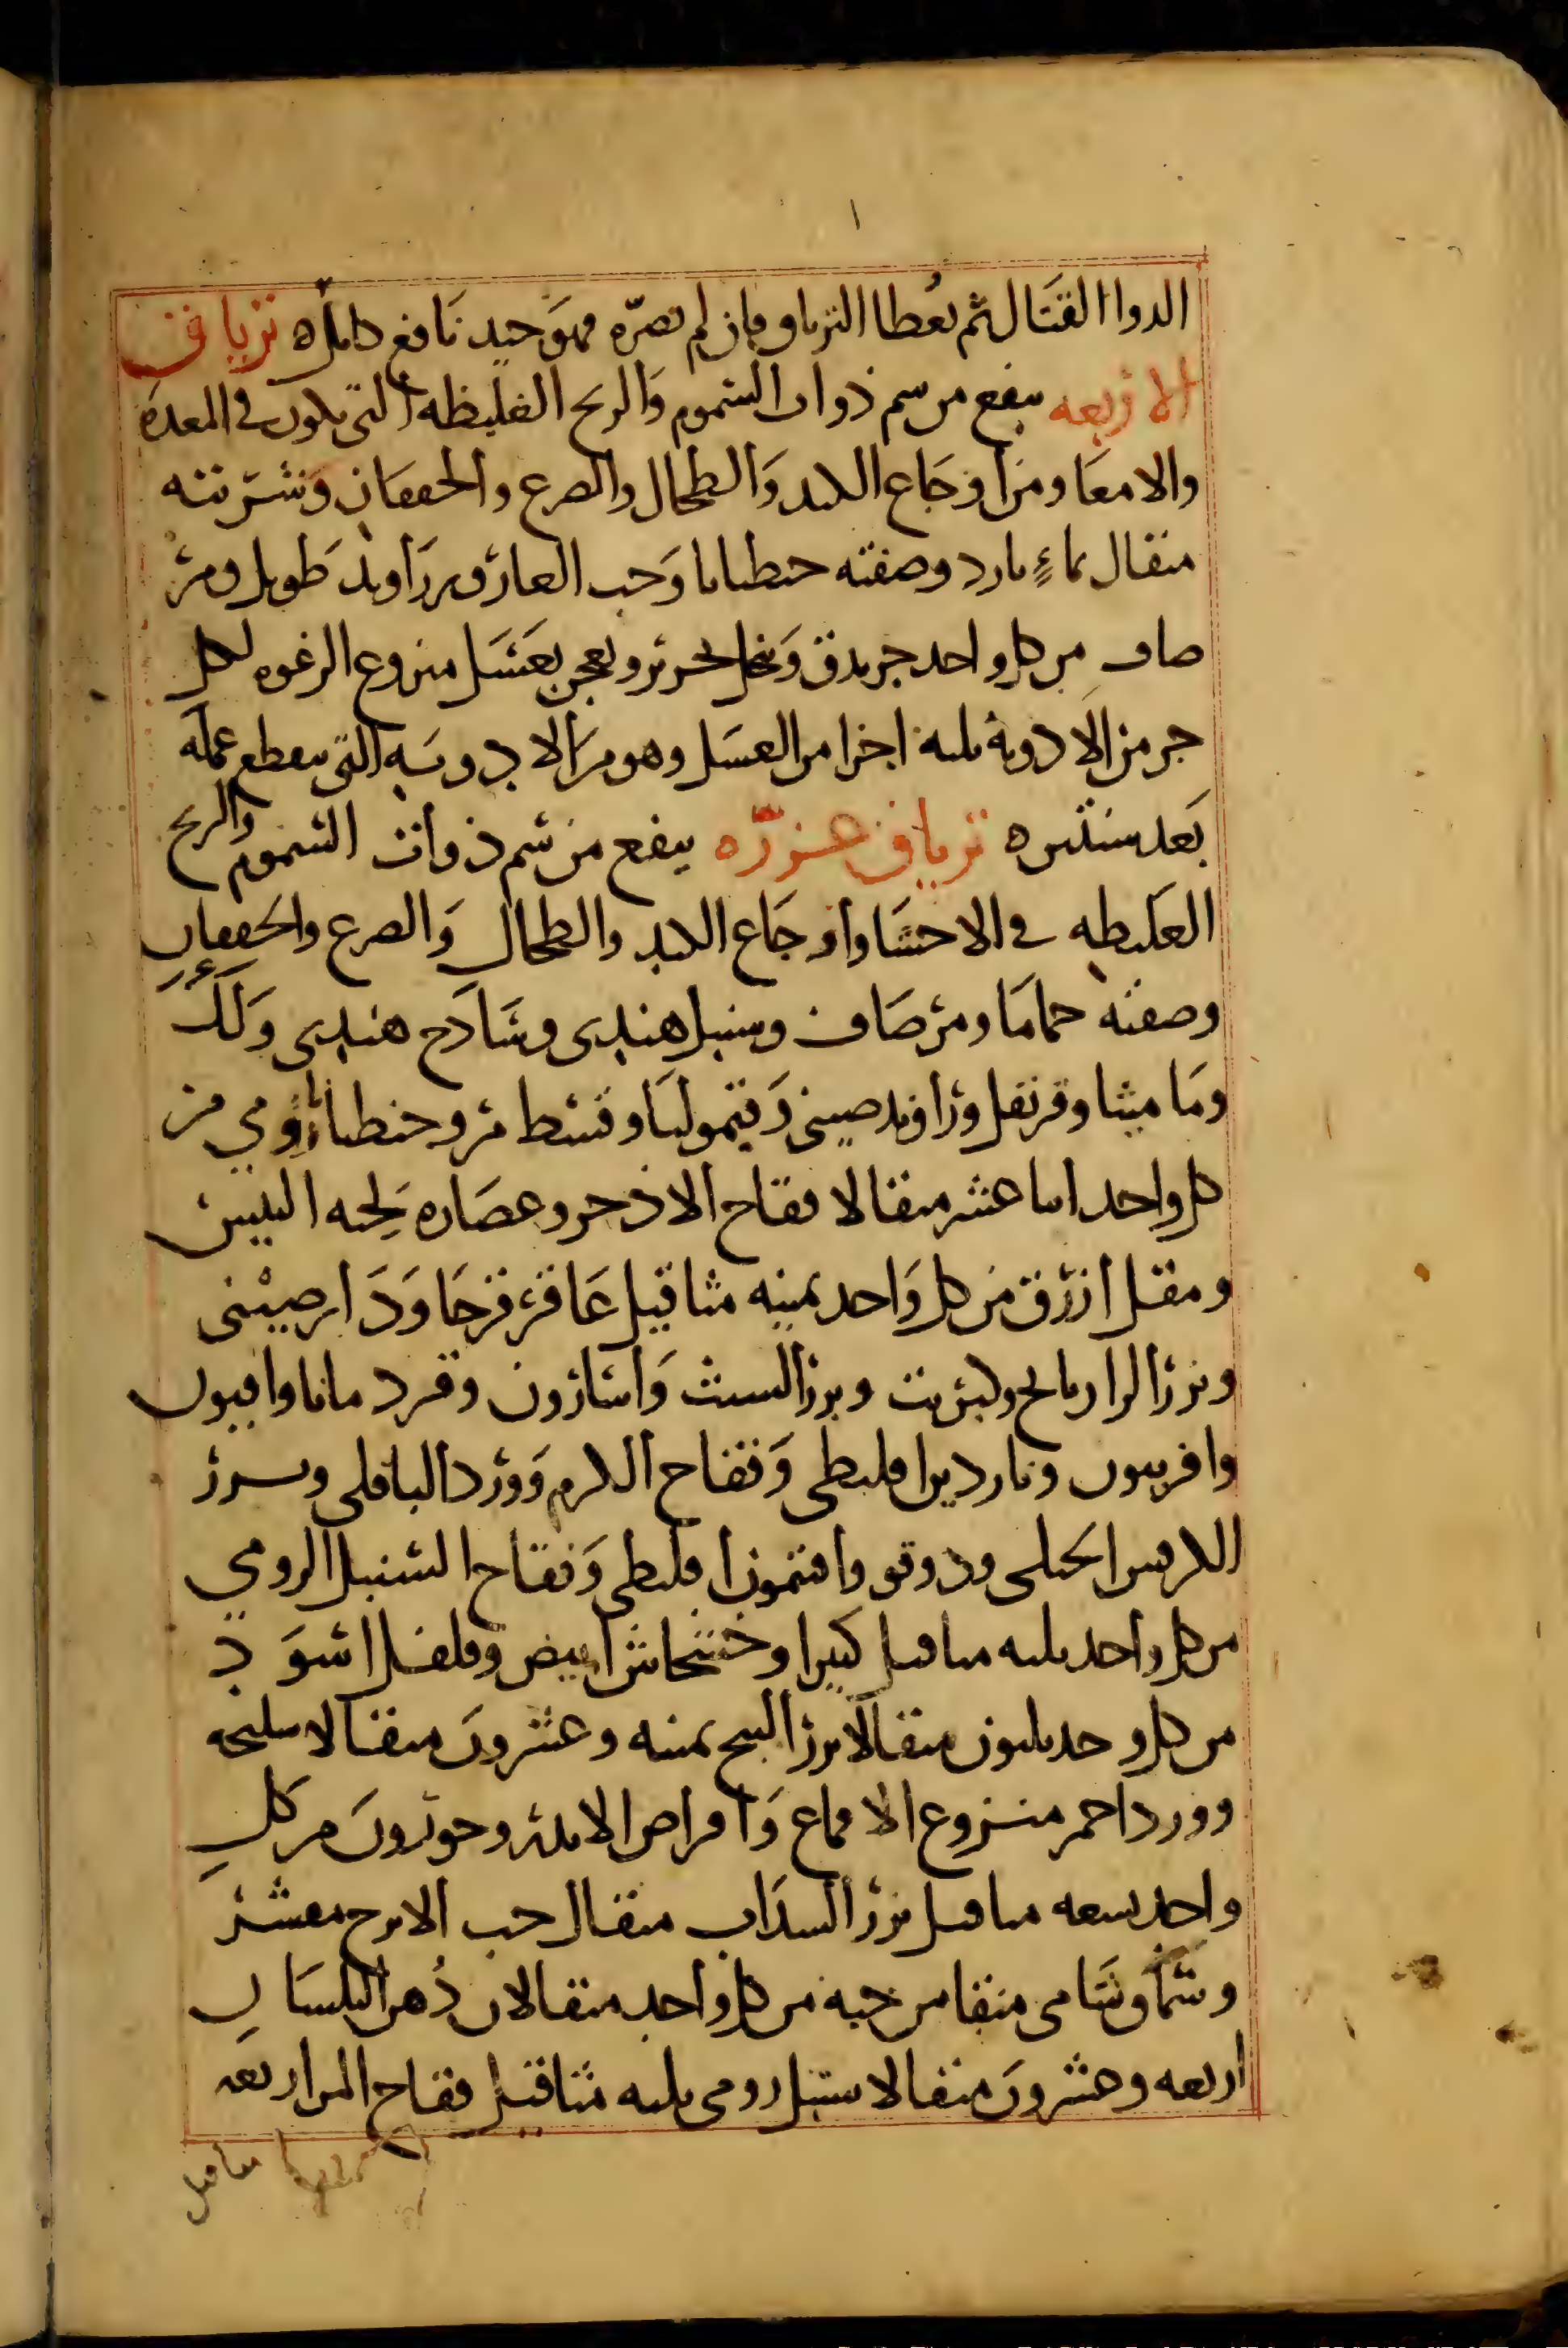 الدوا القتال ثم يعطا الترياق فان لم تضره فهو جيد نافع كامل ه ترياق
الاربعه ينفع من سم ذوات السموم والريح الغليظه التي يكون في المعدة
والامعا ومن اوجاع الكبد والطحال والصرع والخفقان وشربته
مثقال بماءٍ بارد وصفته جنطيانا وحب الغار وزراوند طويل ومر
صاف من كل واحد جز يدق وينخل بحرير ويعجن بعسل منزوع الرغوه لكل
جز من الادوية ثلثة اجزا من العسل وهو من الادوية التي ينقطع عمله
بعد سنتين ه ترياق عزره ينفع من سم ذوات السموم والريح
الغليظه في الاحشا واوجاع الكبد والطحال والصرع والخفقان
وصفته حماما ومر صاف وسنبل هندي وساذج هندي ولك
وماميثا وقرنفل وزراوند صيني وقيموليا وقسط مر وجنطيانا رومي من
كل واحد اثنا عشر مثقالا فقاح الاذخر وعصاره لحيه التيس
ومقل ازرق من كل واحد ثمنيه مثاقيل عاقرقرحا ودارصيني
وبزر الرازيانج وكبريت وبزر الشبث واسارون وقردمانا وافيون
وافربيون وناردين اقليطي وفقاح الكرم وورد الباقلي وبزر
الكرفس الجبلي ودوقو وافتمون اقليطي وفقاح السنبل الرومي
من كل واحد ثلثه مثاقيل كثيرا وخشخاش ابيض وفلفل اسود
من كل وحد ثلثون مثقالا بزر البنج ثمنيه وعشرون مثقالا سليخه
وورد احمر منزوع الاقماع واقراص الاندر وحورون من كل
واحد تسعه مثاقيل بزر السذاب مثقال حب الاترج مقشر
وسماق شامي منقا من حبه من كل واحد مثقالان دهن البلسان
اربعه وعشرون مثقالا سنبل رومي ثلثه مثاقيل فقاح المر اربعه
مثاقيل